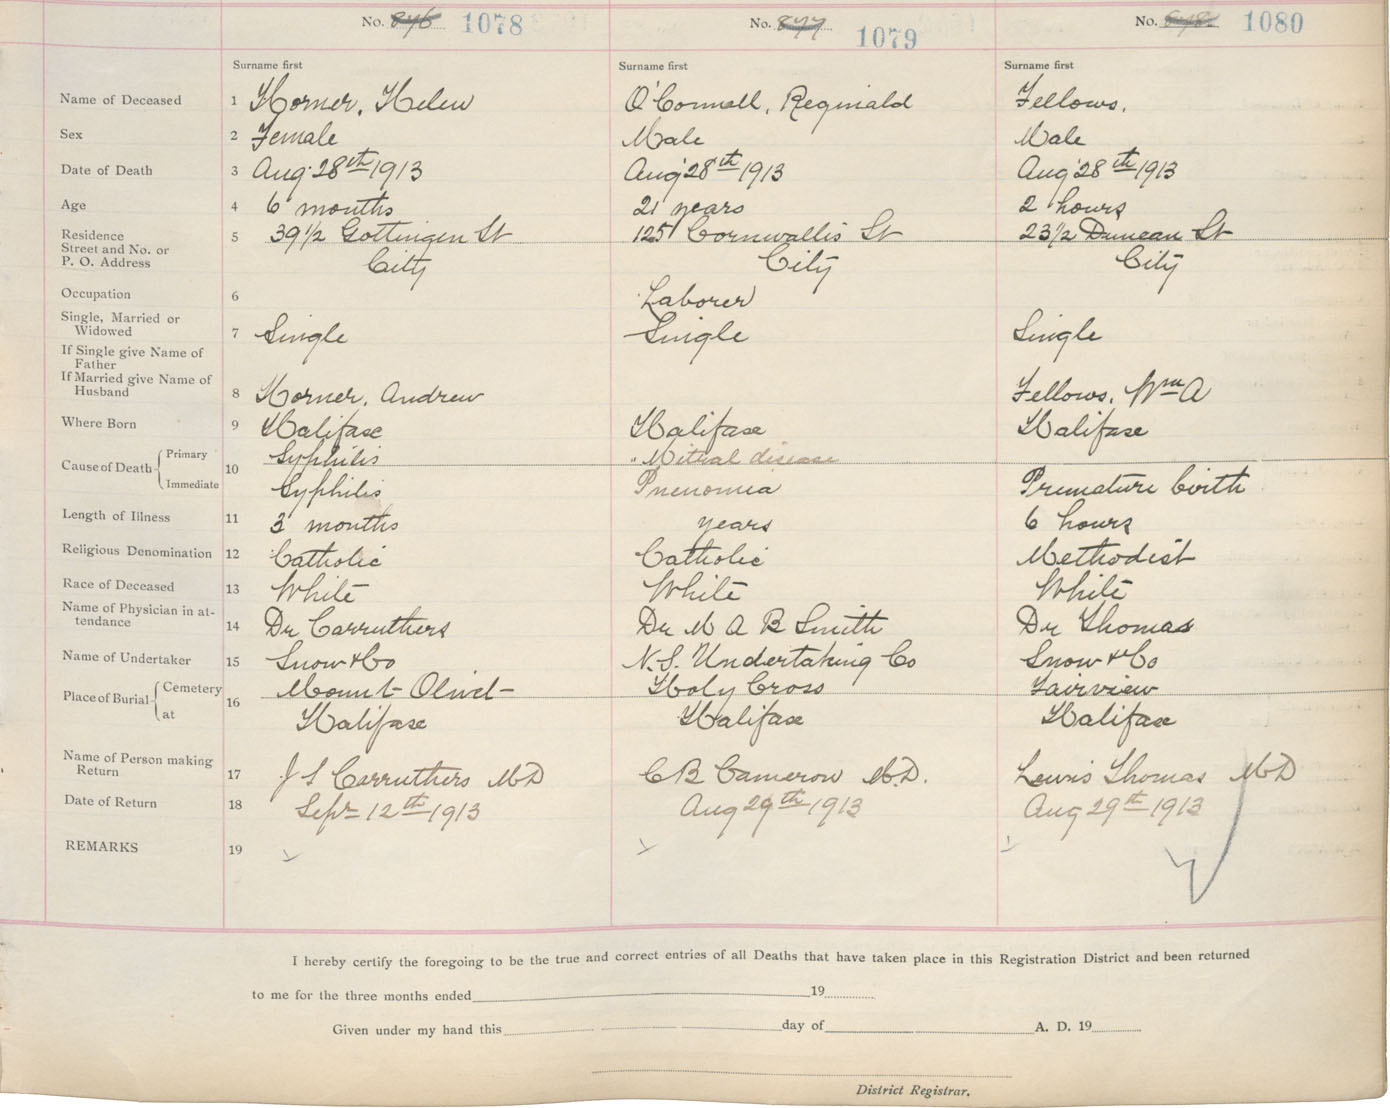 No. 846 1078 No. 877 1079 No. 878 1080
Surname first Surname first Surname first
Name of Deceased 1 Horner, Helen O'Connell, Reginald Fellows,
Sex 2 Female Male Male
Date of Death 3 Aug 28th 1913 Aug 28th 1913 Aug 28th 1913
Age 4 6 months 21 years 2 hours
Residence 5 39 1/2 Gottingen St 125 Cornwallis St 23 1/2 Duncan St
Street and No. or
P. O. Address City City City
Occupation 6 Laborer
Single, Married or
Widowed 7 Single Single Single
If Single give Name of
Father
If Married give Name of
Husband 8 Horner, Andrew Fellows, Wm A
Where Born 9 Halifax Halifax Halifax
Cause of Death Primary 10 Syphilis " Mitral disease
Immediate Syphilis Pnenomia Premature birth
Length of Illness 11 3 months years 6 hours
Religious Denomination 12 Catholic Catholic Methodist
Race of Deceased 13 White White White
Name of Physician in at-
tendance 14 Dr Carruthers Dr M A B Smith Dr Thomas
Name of Undertaker 15 Snow & Co N.S. Undertaking Co Snow & Co
Place of Burial Cemetery 16 Mount Olivet Holy Cross Fairview
at Halifax Halifax Halifax
Name of Person making
Return 17 J S Carruthers MD C B Cameron M.D. Lewis Thomas MD
Date of Return 18 Sept 12th 1913 Aug 29th 1913 Aug 29th 1913
REMARKS 19
I hereby certify the foregoing to be the true and correct entries of all Deaths that have taken place in this Registration District and been returned
to me for the three months ended 19
Given under my hand this day of A. D. 19
District Registrar.